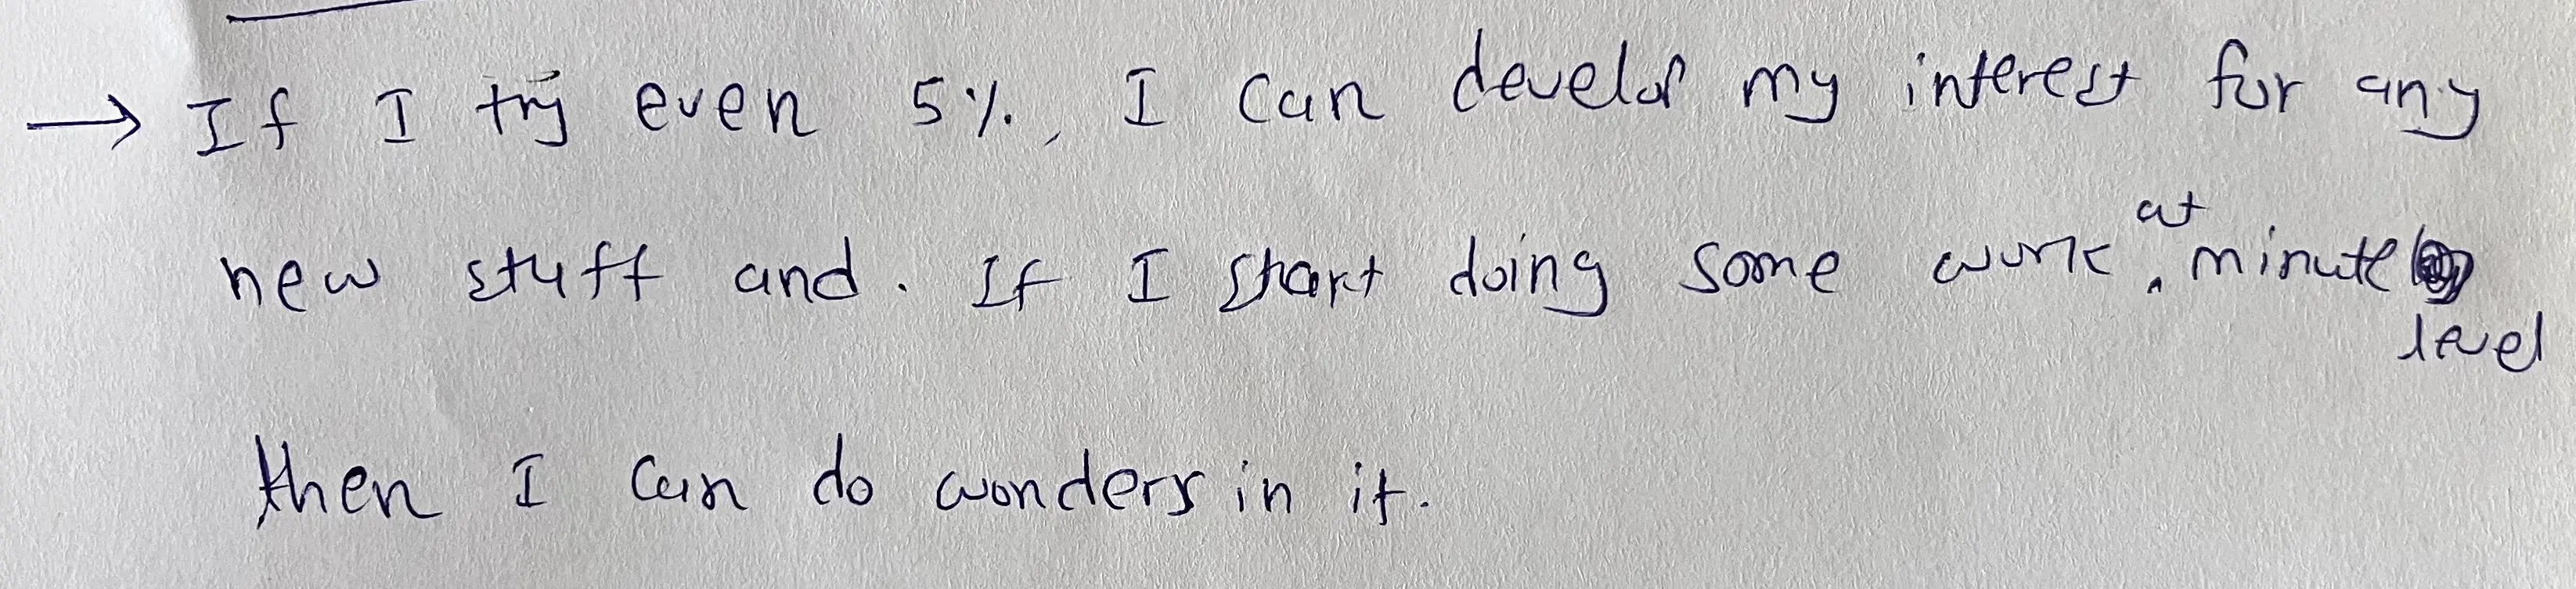 → If I try even 5%, I can develop my interest for any
new stuff and. If I start doing some work at minute
level
then I can do wonders in it.